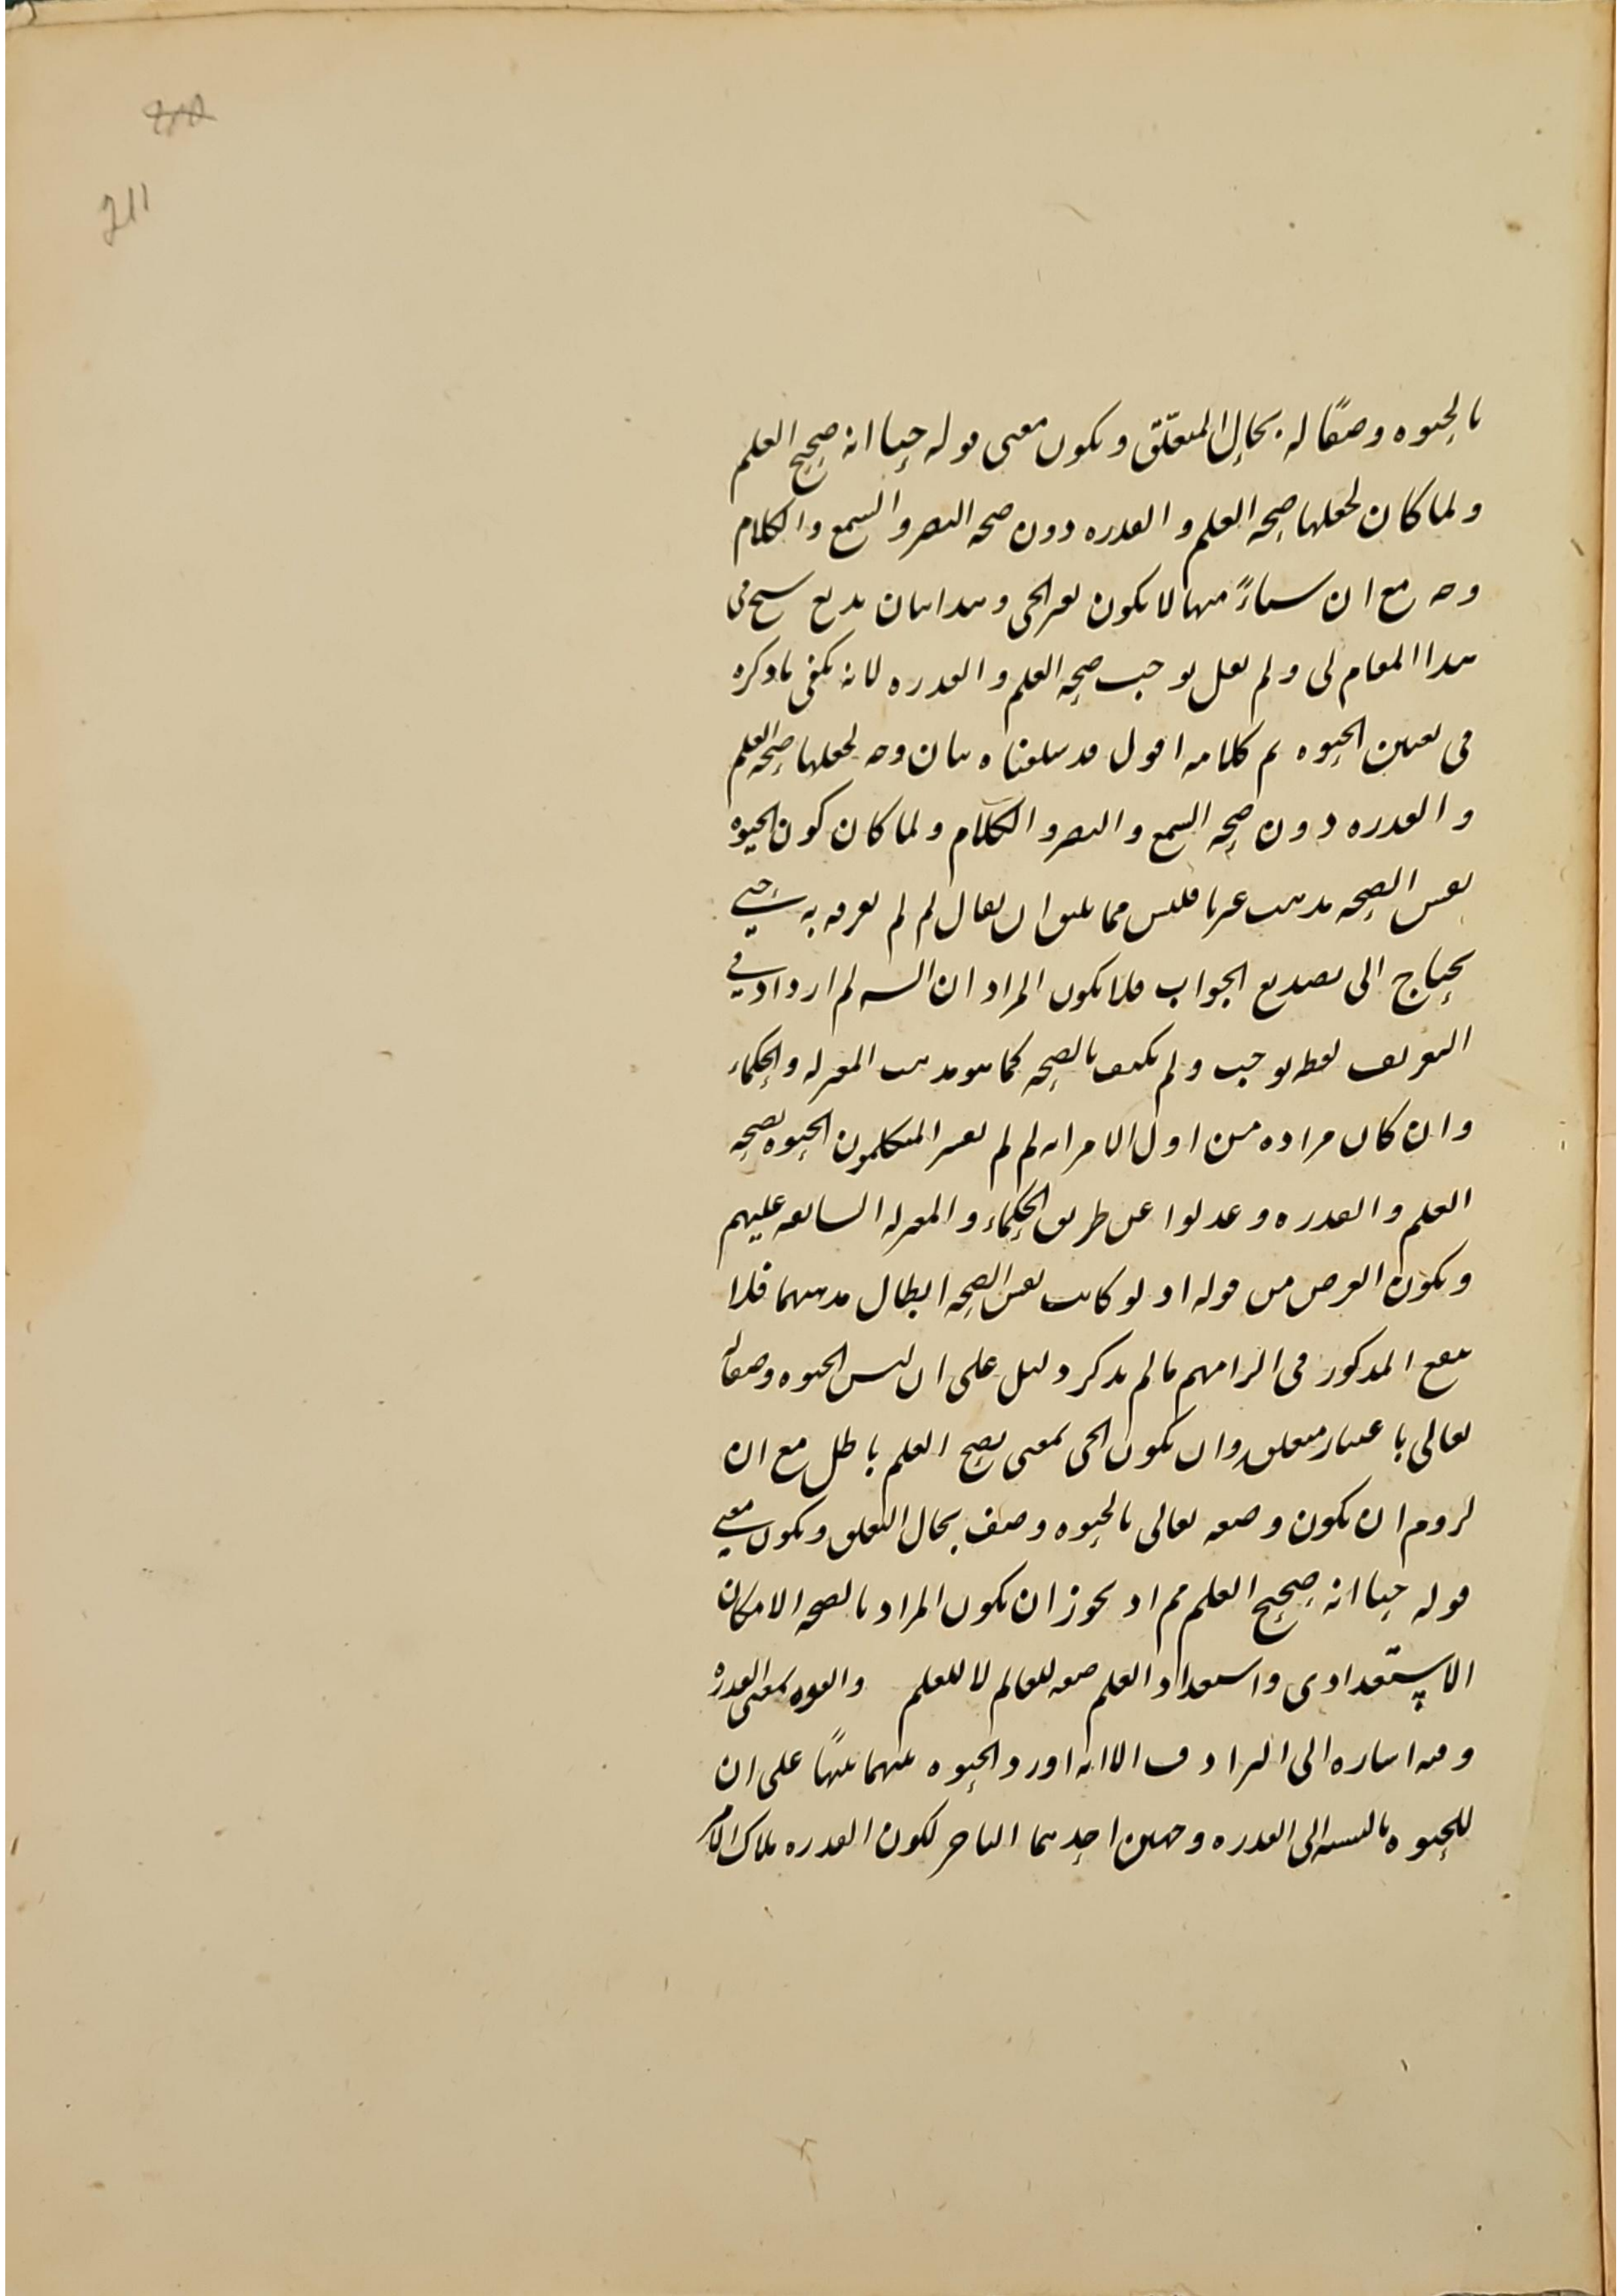 211
بالحيوه وصفًا له بحال المتعلّق ويكون معنى قوله حيا انه صحيح العلم
ولما كان لجعلها صحه العلم والقدره دون صحه البصر والسمع والكلام
وجه مع ان شيئاً منها لا يكون لغير الحى وهذا بيان بديع سنح فى
هذا المقام لى ولم يقل يوجب صحه العلم والقدره لانه يكفى ما ذكره
فى تعيين الحيوه تم كلامه اقول قد سلفناه بيان وجه لجعلها صحه العلم
والقدره دون صحه السمع والبصر والكلام ولما كان كون الحيوه
نفس الصحه مذهب غيرنا فليس مما يليق ان يقال لم لم يعرفه به حتى
يحتاج الى تصديع الجواب فلا يكون المراد ان الشه لم ازداد فى
التعريف لفظه يوجب ولم يكتف بالصحه كما هو مذهب المعتزله والحكماء
وان كان مراده من اول الامر انه لم لم يفسر المتكلمون الحيوه بصحه
العلم والقدره وعدلوا عن طريق الحكماء والمعتزله السابقه عليهم
ويكون الغرض من قوله اذ لو كانت نفس الصحه ابطال مذهبهما فلا
ينفع المذكور فى الزامهم ما لم يذكر دليل على ان ليس الحيوه وصفا له
تعالى باعتبار متعلقه وان يكون الحى بمعنى يصح العلم باطل مع ان
لزوم ان يكون وصفه تعالى بالحيوه وصف بحال المتعلق ويكون معنى
قوله حيا انه صحيح العلم مم اذ يجوز ان يكون المراد بالصحه الامكان
الاستعدادى واستعداد العلم صفه للعالم لا للعلم والقوه بمعنى القدره
وفيه اشاره الى الترادف الا انه اورد الحيوه بينهما تنبيهًا على ان
للحيوه بالنسبه الى القدره وجهين احدهما التاخر لكون القدره ملاك الامر